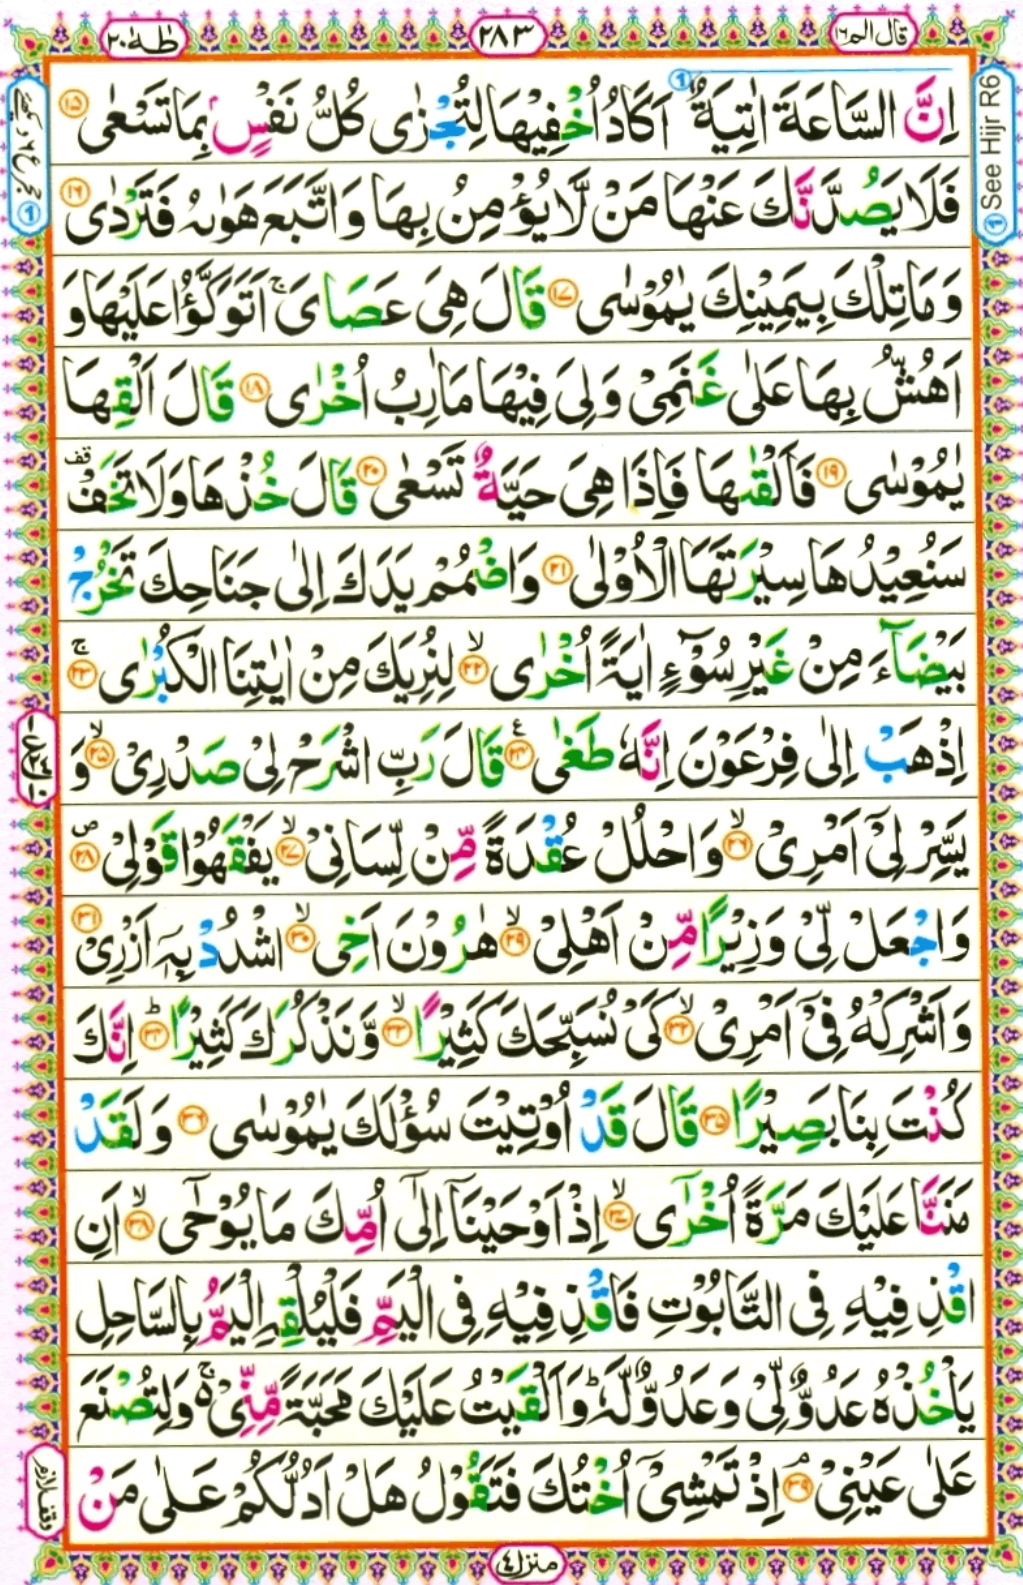 قال الم ١٦
٢٨٣
طٰهٰ ٢٠
اِنَّ السَّاعَةَ اٰتِيَةٌ اَكَادُ اُخْفِيْهَا لِتُجْزٰى كُلُّ نَفْسٍۢ بِمَا تَسْعٰى ١٥
فَلَا يَصُدَّنَّكَ عَنْهَا مَنْ لَّا يُؤْمِنُ بِهَا وَاتَّبَعَ هَوٰىهُ فَتَرْدٰى ١٦
وَمَا تِلْكَ بِيَمِيْنِكَ يٰمُوْسٰى ١٧ قَالَ هِىَ عَصَاىَ ۚ اَتَوَكَّؤُا عَلَيْهَا وَ
اَهُشُّ بِهَا عَلٰى غَنَمِىْ وَلِىَ فِيْهَا مَاٰرِبُ اُخْرٰى ١٨ قَالَ اَلْقِهَا
يٰمُوْسٰى ١٩ فَاَلْقٰىهَا فَاِذَا هِىَ حَيَّةٌ تَسْعٰى ٢٠ قَالَ خُذْهَا وَلَا تَخَفْ قف
سَنُعِيْدُهَا سِيْرَتَهَا الْاُوْلٰى ٢١ وَاضْمُمْ يَدَكَ اِلٰى جَنَاحِكَ تَخْرُجْ
بَيْضَآءَ مِنْ غَيْرِ سُوْٓءٍ اٰيَةً اُخْرٰى ۙ ٢٢ لِنُرِيَكَ مِنْ اٰيٰتِنَا الْكُبْرٰى ۚ ٢٣
اِذْهَبْ اِلٰى فِرْعَوْنَ اِنَّهٗ طَغٰى ٢٤ قَالَ رَبِّ اشْرَحْ لِىْ صَدْرِىْ ۙ ٢٥ وَ
يَسِّرْ لِىْٓ اَمْرِىْ ۙ ٢٦ وَاحْلُلْ عُقْدَةً مِّنْ لِّسَانِىْ ۙ ٢٧ يَفْقَهُوْا قَوْلِىْ ص ٢٨
وَاجْعَلْ لِّىْ وَزِيْرًا مِّنْ اَهْلِىْ ۙ ٢٩ هٰرُوْنَ اَخِى ۙ ٣٠ اشْدُدْ بِهٖٓ اَزْرِىْ ٣١
وَاَشْرِكْهُ فِىْٓ اَمْرِىْ ۙ ٣٢ كَىْ نُسَبِّحَكَ كَثِيْرًا ۙ ٣٣ وَّنَذْكُرَكَ كَثِيْرًا ؕ ٣٤ اِنَّكَ
كُنْتَ بِنَا بَصِيْرًا ٣٥ قَالَ قَدْ اُوْتِيْتَ سُؤْلَكَ يٰمُوْسٰى ٣٦ وَلَقَدْ
مَنَنَّا عَلَيْكَ مَرَّةً اُخْرٰٓى ۙ ٣٧ اِذْ اَوْحَيْنَآ اِلٰٓى اُمِّكَ مَا يُوْحٰٓى ۙ ٣٨ اَنِ
اقْذِفِيْهِ فِى التَّابُوْتِ فَاقْذِفِيْهِ فِى الْيَمِّ فَلْيُلْقِهِ الْيَمُّ بِالسَّاحِلِ
يَاْخُذْهُ عَدُوٌّ لِّىْ وَعَدُوٌّ لَّهٗ ؕ وَاَلْقَيْتُ عَلَيْكَ مَحَبَّةً مِّنِّىْ ۚ وَلِتُصْنَعَ
عَلٰى عَيْنِىْ ۘ ٣٩ اِذْ تَمْشِىْٓ اُخْتُكَ فَتَقُوْلُ هَلْ اَدُلُّكُمْ عَلٰى مَنْ
منزل ٤
① See Hijr R6
وقف لازم